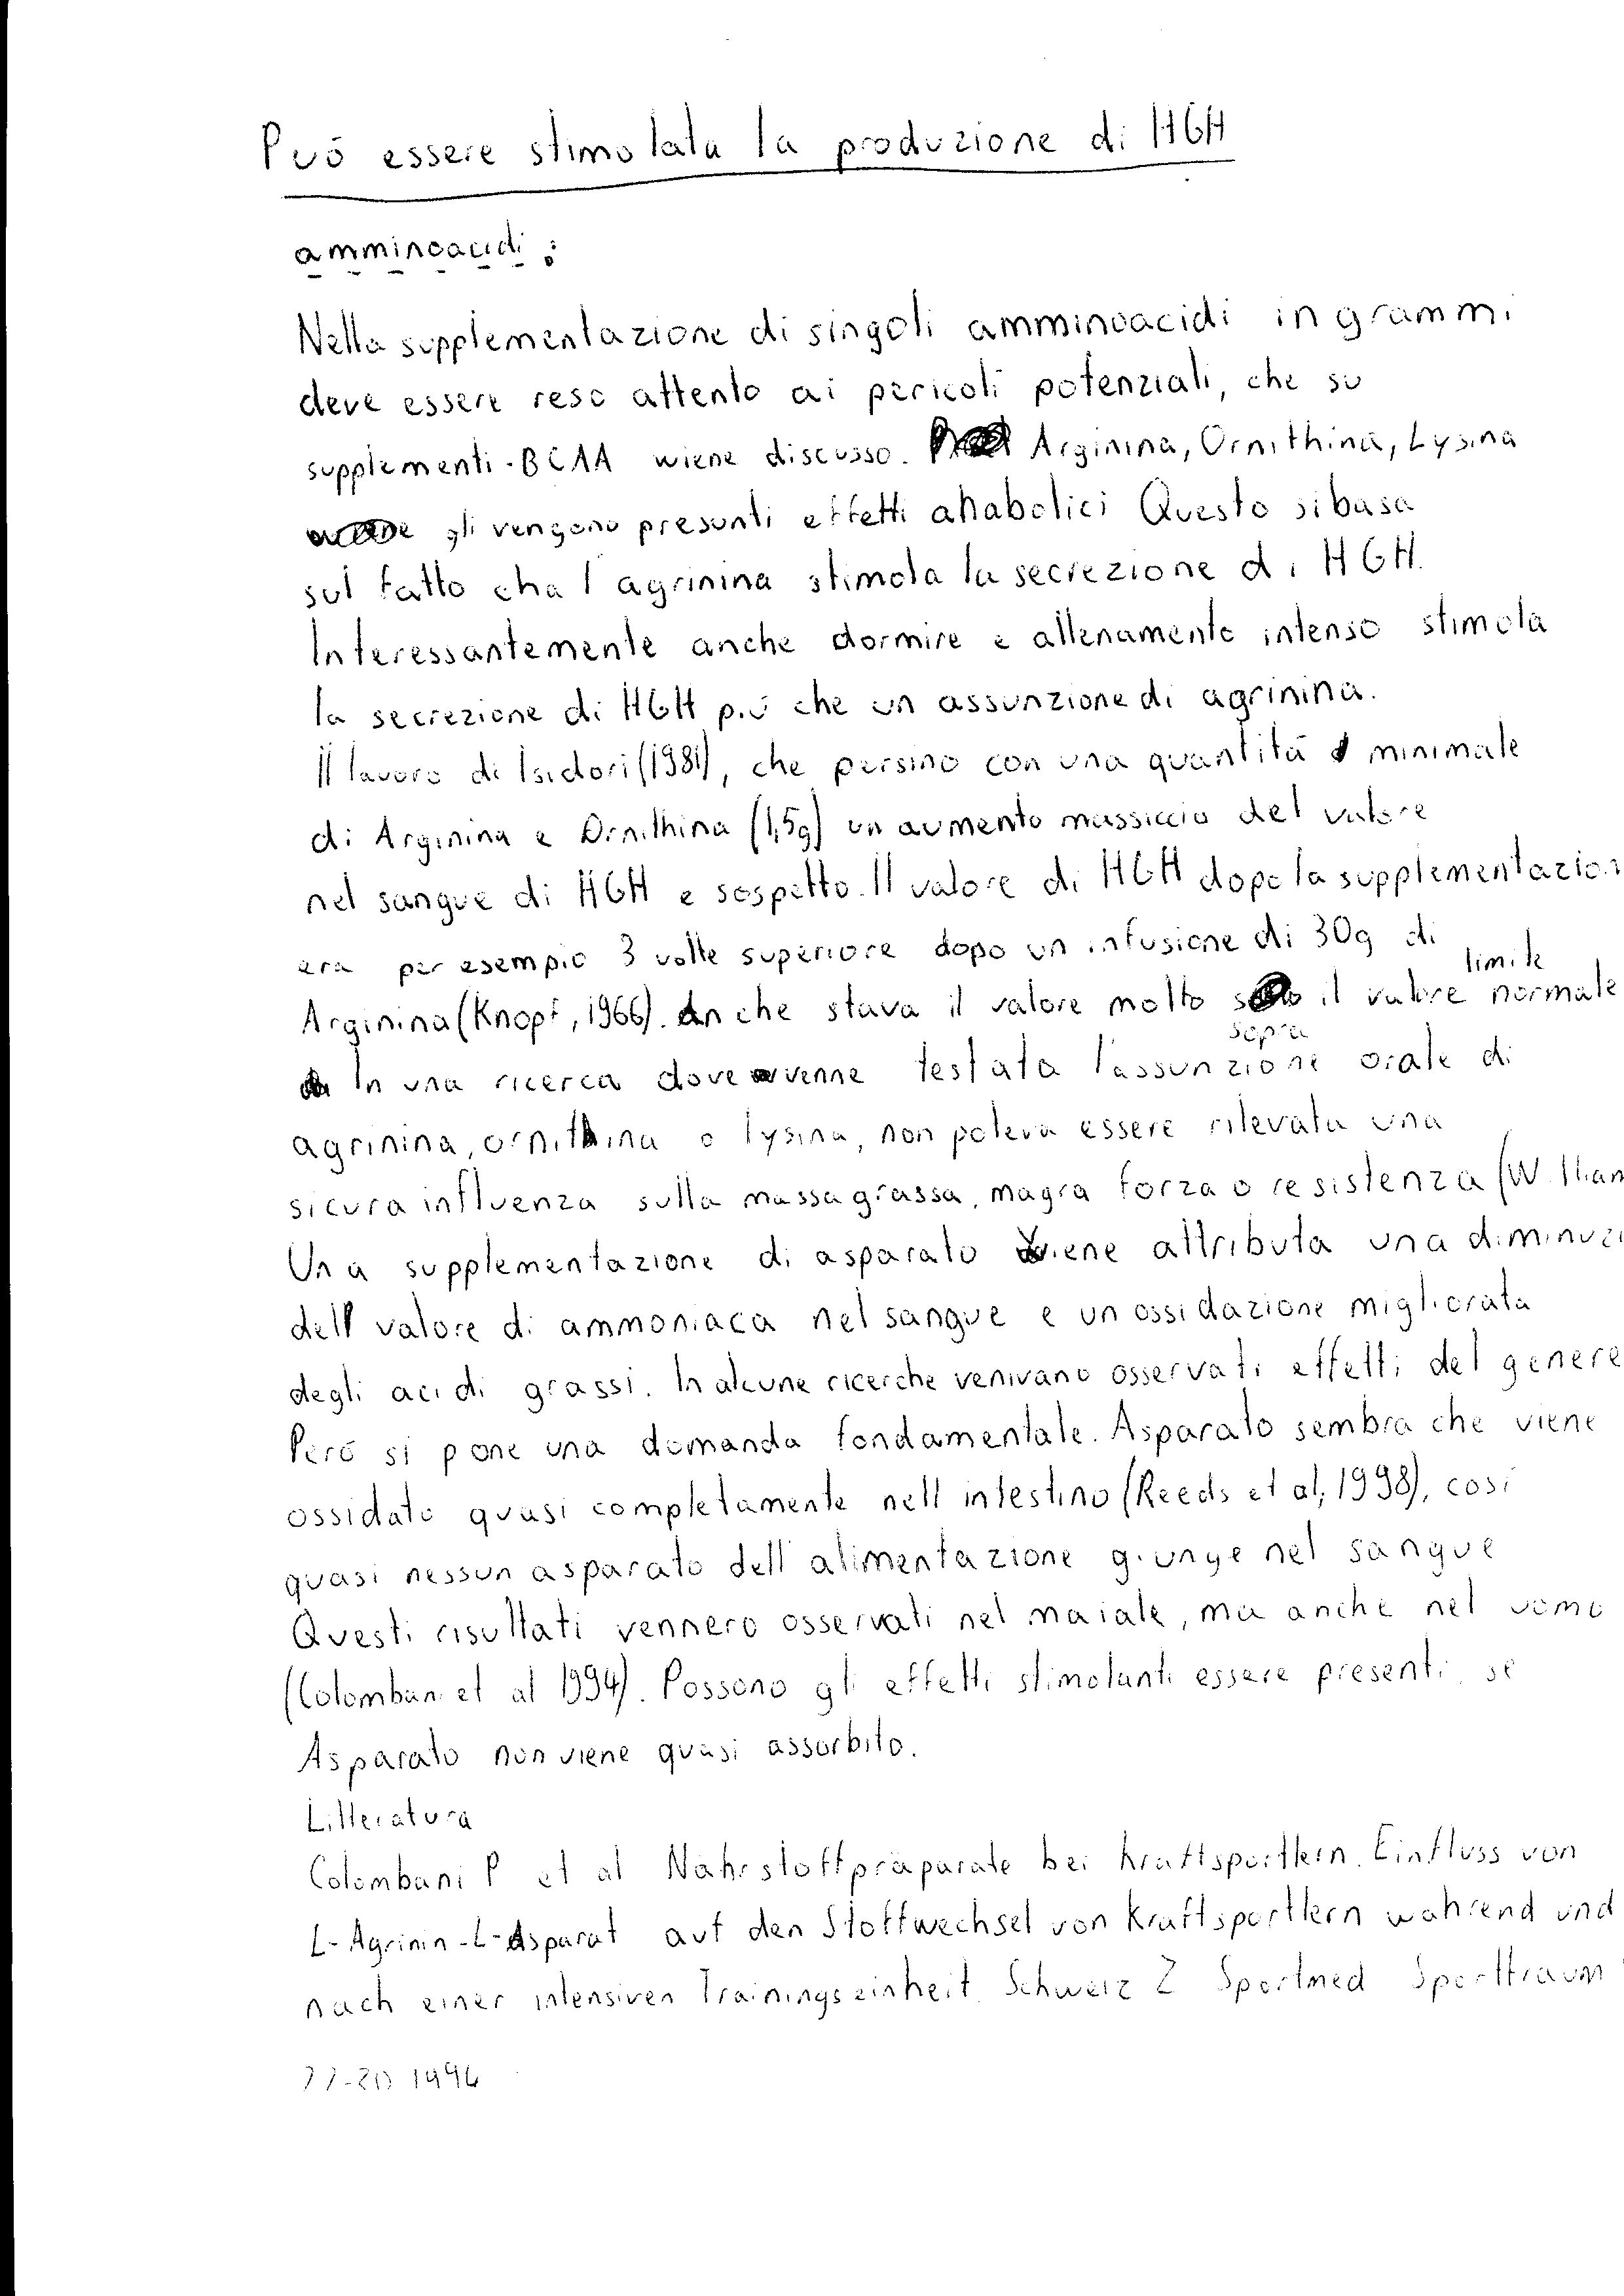 Puó essere stimolata la produzione di HGH
amminoacidi:
Nella supplementazione di singoli amminoacidi in grammi
deve essere reso attento ai pericoli potenziali, che su
supplementi-BCAA wiene discusso. Arginina, Ornithina, Lysina
gli vengono presunti effetti anabolici Questo si basa
sul fatto cha l'agrinina stimola la secrezione di HGH.
Interessantemente anche dormire e allenamento intenso stimola
la secrezione di HGH piú che un assunzione di agrinina.
Il lavoro di Isidori (1981), che persino con una quantitá minimale
di Arginina e Ornithina (1,5g) un aumento massiccio del valore
nel sangue di HGH e sospetto. Il valore di HGH dopo la supplementazion
era per esempio 3 volte superiore dopo un infusione di 30g di
Arginina (Knopf, 1966). Anche stava il valore molto sopra il valore limite normale
In una ricerca dove venne testata l'assunzione orale di
agrinina, ornithina o lysina, non poteva essere rilevata una
sicura influenza sulla massa grassa, magra forza o resistenza (William
Una supplementazione di asparato viene attributa una diminuzi
dell valore di ammoniaca nel sangue e un ossidazione migliorata
degli acidi grassi. In alcune ricerche venivano osservati effetti del genere
Peró si pone una domanda fondamentale. Asparato sembra che viene
ossidato quasi completamente nell intestino (Reeds et al; 1998), cosí
quasi nessun asparato dell'alimentazione giunge nel sangue
Questi risultati vennero osservati nel maiale, ma anche nel uomo
(Colombani et al 1994). Possono gli effetti stimolanti essere presenti, se
Asparato non viene quasi assorbito.
Litteratura
Colombani P et al Nährstoffpräparate bei Kraftsportlern. Einfluss von
L-Agrinin-L-Asparat auf den Stoffwechsel von Kraftsportlern während und
nach einer intensiven Trainingseinheit. Schweiz Z Sportmed Sporttraum
1994